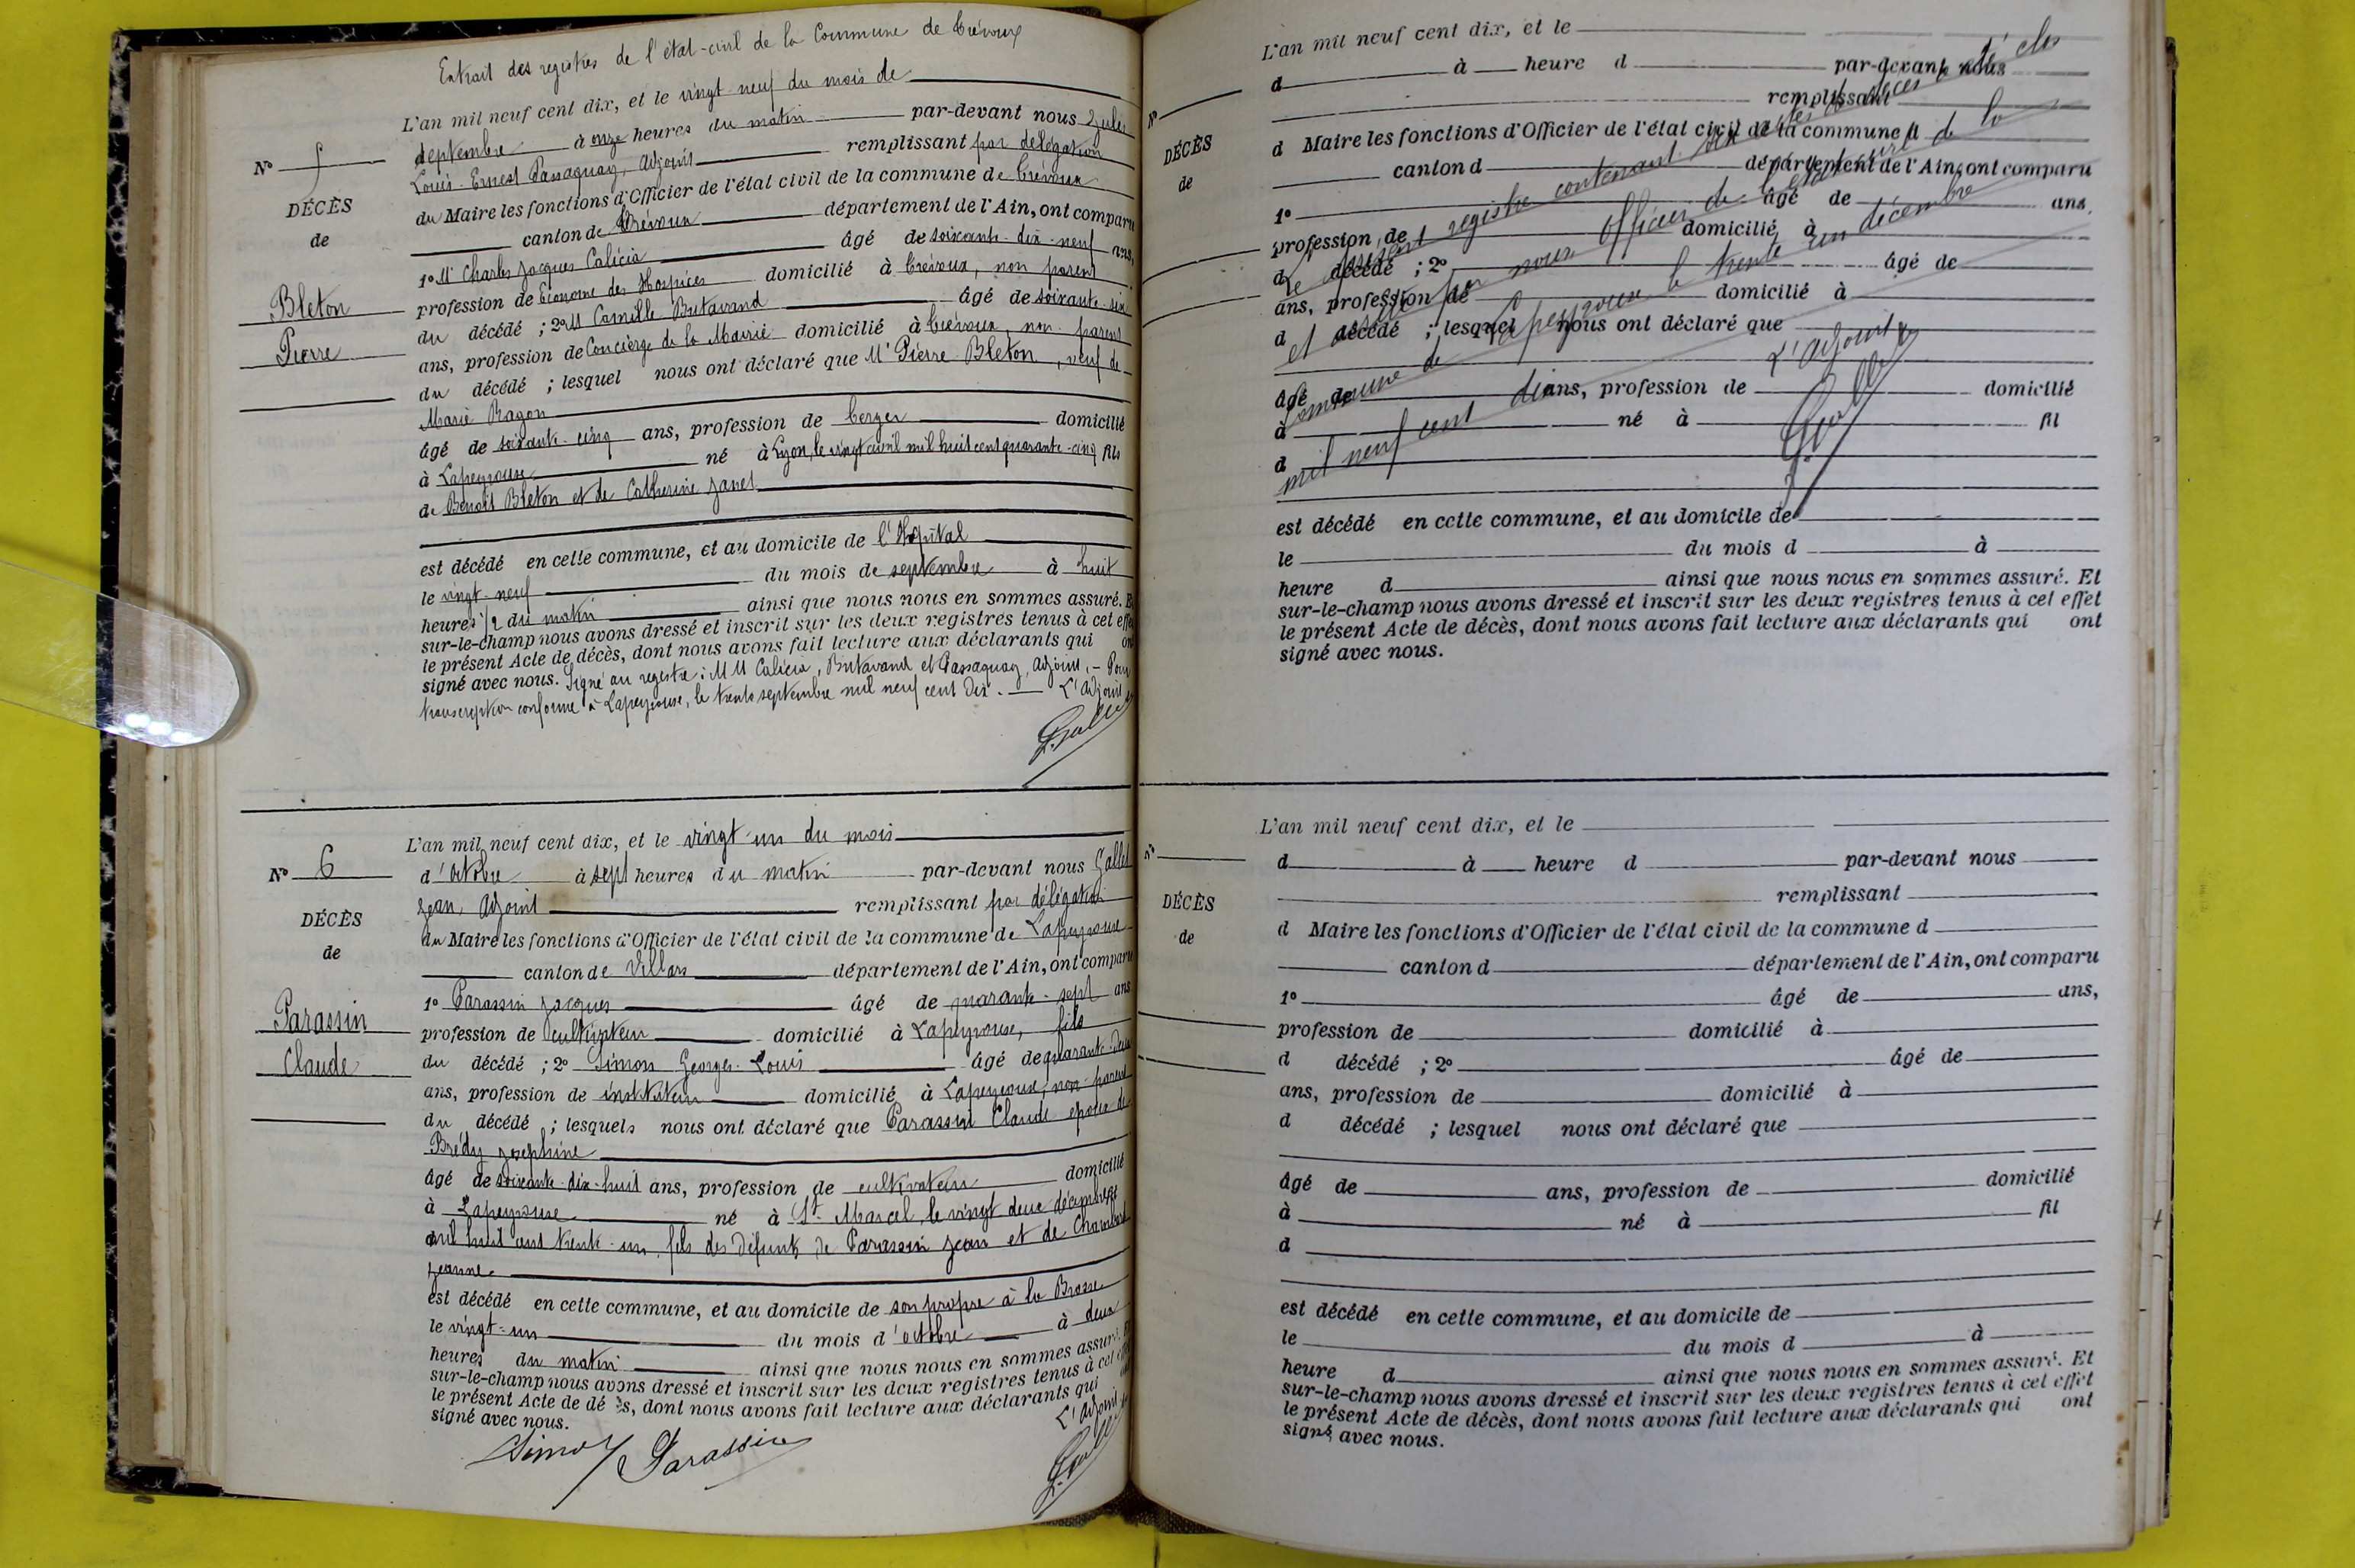 Extrait des registres de l'état-civil de la Commune de Trévoux
L'an mil neuf cent dix, et le vingt-neuf du mois de
septembre à onze heures du matin par-devant nous Jules
Louis-Ernest Passaquay, Adjoint remplissant par délégation
du Maire les fonctions d'Officier de l'état civil de la commune de Trévoux
canton de Trévoux département de l'Ain, ont comparu
1º Mr Charles Jacques Calicia âgé de soixante-dix-neuf ans,
profession de Econome des Hospices domicilié à Trévoux, non parent
du décédé ; 2º M Camille Butavand âgé de soixante-six
ans, profession de Concierge de la Mairie domicilié à Trévoux, non parent
du décédé ; lesquel nous ont déclaré que Mr Pierre Bleton, veuf de
Marie Ragon
âgé de soixante-cinq ans, profession de berger domicilié
à Lapeyrouse né à Lyon, le vingt avril mil huit cent quarante-cinq fils
de Benoît Bleton et de Catherine Janet
est décédé en cette commune, et au domicile de l'Hôpital
le vingt-neuf du mois de septembre à huit
heures 1/2 du matin ainsi que nous nous en sommes assuré. Et
sur-le-champ nous avons dressé et inscrit sur les deux registres tenus à cet effet
le présent Acte de décès, dont nous avons fait lecture aux déclarants qui ont
signé avec nous. Signé au registre : MM Calicia, Butavand et Passaquay, Adjoint. – Pour
transcription conforme à Lapeyrouse, le trente septembre mil neuf cent dix. — L'Adjoint
Nº
DÉCÈS
de
Bleton
Pierre
Nº 6
DÉCÈS
de
Parassin
Claude
L'an mil neuf cent dix, et le vingt-un du mois
d'octobre à sept heures du matin par-devant nous Gallet
Jean, Adjoint remplissant par délégation
du Maire les fonctions d'Officier de l'état civil de la commune de Lapeyrouse
canton de Villars département de l'Ain, ont comparu
1º Parassin Jacques âgé de quarante-sept ans
profession de cultivateur domicilié à Lapeyrouse, fils
du décédé ; 2º Simon Georges-Louis âgé de quarante-deux
ans, profession de instituteur domicilié à Lapeyrouse, non parent
du décédé ; lesquels nous ont déclaré que Parassin Claude époux de
Brédy Joséphine
âgé de soixante-dix-huit ans, profession de cultivateur domicilié
à Lapeyrouse né à St Marcel, le vingt deux décembre
mil huit cent trente-un, fils des défunts de Parassin Jean et de Chambard
Jeanne.
est décédé en cette commune, et au domicile de son propre à la Brosse
le vingt-un du mois d'octobre à deux
heures du matin ainsi que nous nous en sommes assuré. Et
sur-le-champ nous avons dressé et inscrit sur les deux registres tenus à cet effet
le présent Acte de décès, dont nous avons fait lecture aux déclarants qui ont
signé avec nous.
L'Adjoint
Simon Parassin
L'an mil neuf cent dix, et le
d à heure d par-devant nous
remplissant
d Maire les fonctions d'Officier de l'état civil de la commune d
canton d département de l'Ain, ont comparu
1º âgé de ans,
profession de domicilié à
d décédé ; 2º âgé de
ans, profession de domicilié à
d décédé ; lesquel nous ont déclaré que
âgé de ans, profession de domicilié
à né à fil
d
est décédé en cette commune, et au domicile de
le du mois d à
heure d ainsi que nous nous en sommes assuré. Et
sur-le-champ nous avons dressé et inscrit sur les deux registres tenus à cet effet
le présent Acte de décès, dont nous avons fait lecture aux déclarants qui ont
signé avec nous.
DÉCÈS
de
Le présent registre contenant six actes de décès a été clos
et arrêté par nous Officier de l'état civil de la
commune de Lapeyrouse le trente un décembre
mil neuf cent dix
L'Adjoint
Nº
DÉCÈS
de
L'an mil neuf cent dix, et le
d à heure d par-devant nous
remplissant
d Maire les fonctions d'Officier de l'état civil de la commune d
canton d département de l'Ain, ont comparu
1º âgé de ans,
profession de domicilié à
d décédé ; 2º âgé de
ans, profession de domicilié à
d décédé ; lesquel nous ont déclaré que
âgé de ans, profession de domicilié
à né à fil
d
est décédé en cette commune, et au domicile de
le du mois d à
heure d ainsi que nous nous en sommes assuré. Et
sur-le-champ nous avons dressé et inscrit sur les deux registres tenus à cet effet
le présent Acte de décès, dont nous avons fait lecture aux déclarants qui ont
signé avec nous.